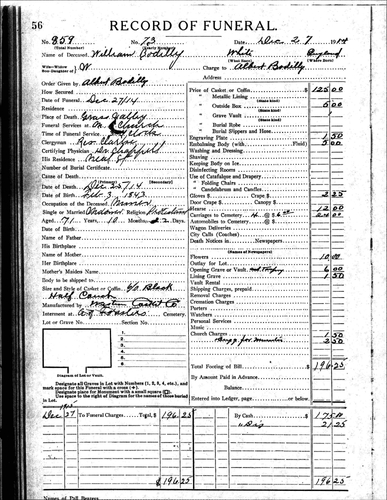 56
RECORD OF FUNERAL.
No. 859 No. 73 Date, Dec 27 1914
(Total Number) (Yearly Number)
Name of Deceased William Bodilly White England
(Where Born)
Wife—Widow
Son-Daughter of W Charge to Albert Bodilly
Address
Order Given by Albert Bodilly
How Secured
Date of Funeral Dec 27/14
Residence
Place of Death Grass Valley
Funeral Services at Church
Time of Funeral Service
Clergyman Rev.
Certifying Physician Dr
His Residence
Number of Burial Certificate
Cause of Death
Date of Death Dec 25/14
Date of Birth Feb 3 1843
Occupation of the Deceased Miner
Single or Married Widower Religion Protestant
Aged 71 Years, 10 Months, 22 Days.
Date of Birth
Name of Father
His Birthplace
Name of Mother
Her Birthplace
Mother's Maiden Name
Body to be shipped to
Size and Style of Casket or Coffin 6/0 Black
Half Couch
Manufactured by Western Casket Co
Interment at Cemetery.
Lot or Grave No. Section No.
Diagram of Lot or Vault.
1
2
3
4
5
6
Designate all Graves in Lot with Numbers (1, 2, 3, 4, etc.), and
mark space for this Funeral with a cross (+).
Designate place for Monument with a small square (□).
Use space to right of Diagram for the names of those buried
in Lot.
Price of Casket or Coffin $ 125 00
" Metallic Lining
(State kind)
" Outside Box 5 00
(State kind)
" Grave Vault
(State kind)
" Burial Robe
" Burial Slippers and Hose
Engraving Plate 1 50
Embalming Body (with Fluid) 5 00
Washing and Dressing
Shaving
Keeping Body on Ice
Disinfecting Rooms
Use of Catafalque and Drapery
" Folding Chairs
" Candelabrum and Candles
Gloves $ 2 25
Door Crape $ Candy $
Hearse 12 00
Carriages to Cemetery 4 @ $ 6 00 24 00
Automobiles to Cemetery @ $
Wagon Deliveries
City Calls (Coaches)
Death Notices in Newspapers
(Names of Newspapers)
Flowers 10 00
Outlay for Lot
Opening Grave or Vault 6 00
Lining Grave 1 50
Vault Rental
Shipping Charges, prepaid
Removal Charges
Cremation Charges
Porters
Watchers
Personal Services
Music
Church Charges 1 50
Buggy for Minister 2 50
Total Footing of Bill $ 196 25
By Amount Paid in Advance
Balance
Entered into Ledger, page or below.
1915
Dec 27 To Funeral Charges Total, $ 196 25 By Cash $ 175 00
" Dis 21 25
$ 196 25 196 25
Names of Pall Bearers